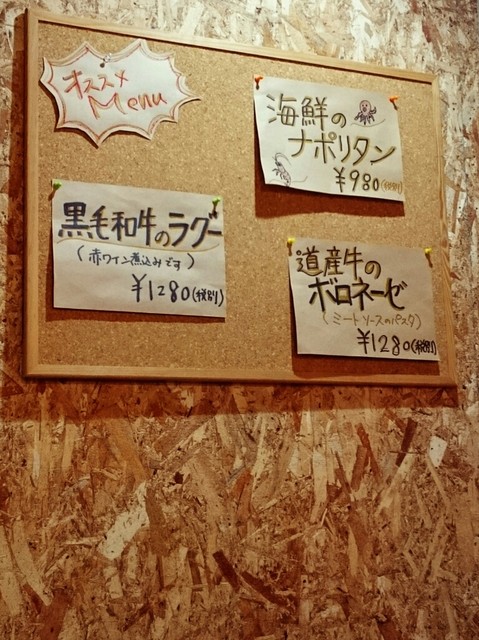 オススメ
Menu
海鮮の
ナポリタン
¥980(税別)
黒毛和牛のラグー
(赤ワイン煮込みです)
¥1280(税別)
道産牛の
ボロネーゼ
(ミートソースのパスタ)
¥1280(税別)